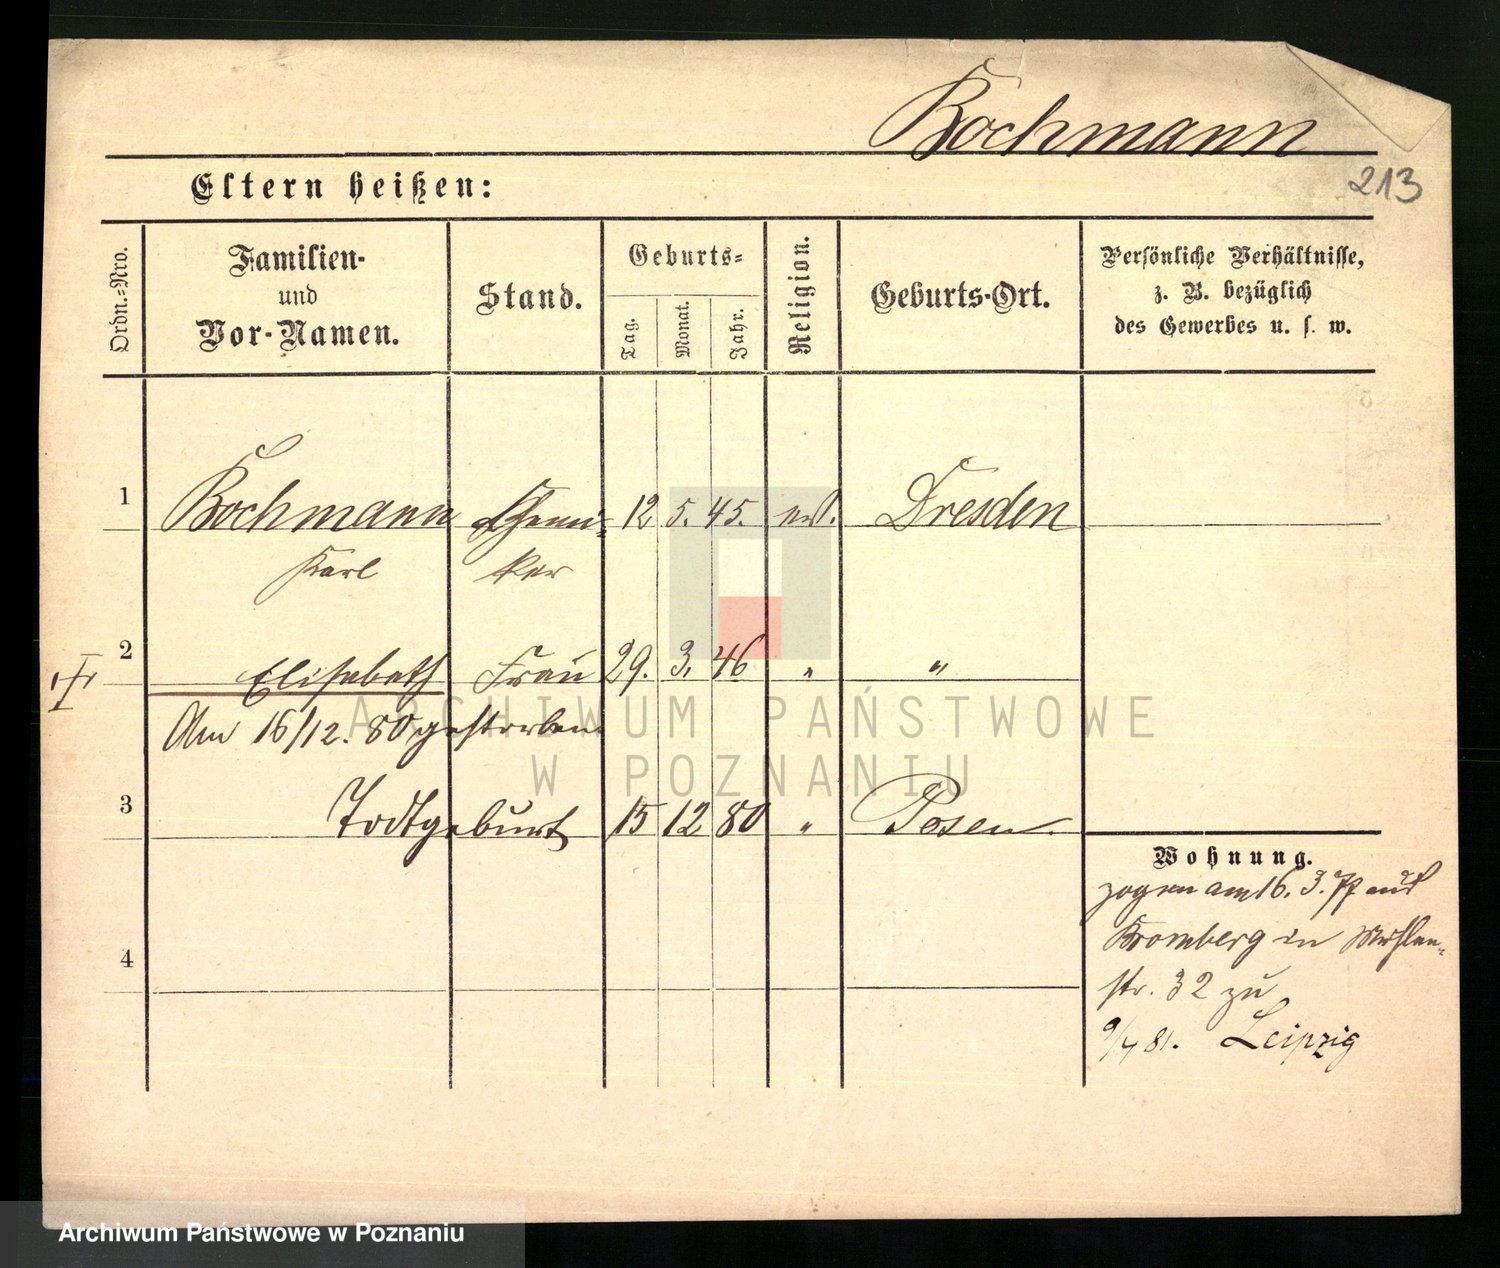 Bochmann
213
Eltern heißen:
Ordn.-Nro.
Familien-
und
Vor-Namen.
Stand.
Geburts-
Tag.
Monat.
Jahr.
Religion.
Geburts-Ort.
Persönliche Verhältnisse,
z. B. bezüglich
des Gewerbes u. s. w.
1 Bochmann Chemi- 12 5. 45. ev. Dresden
Karl ker
2 Elisabeth Frau 29. 3. 46 " "
Am 16/12. 80 gestorben
3 Todtgeburt 15 12 80 " Posen
Wohnung.
zogen am 16. 3. 77 aus
Bromberg in Mühlen-
str. 32 zu
9/4 81. Leipzig
4
ARCHIWUM PAŃSTWOWE
W POZNANIU
Archiwum Państwowe w Poznaniu